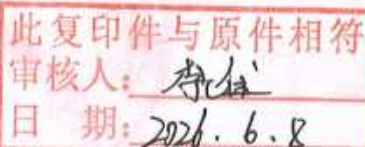 此复印件与原件相符
审核人：李
日 期：2026.6.8